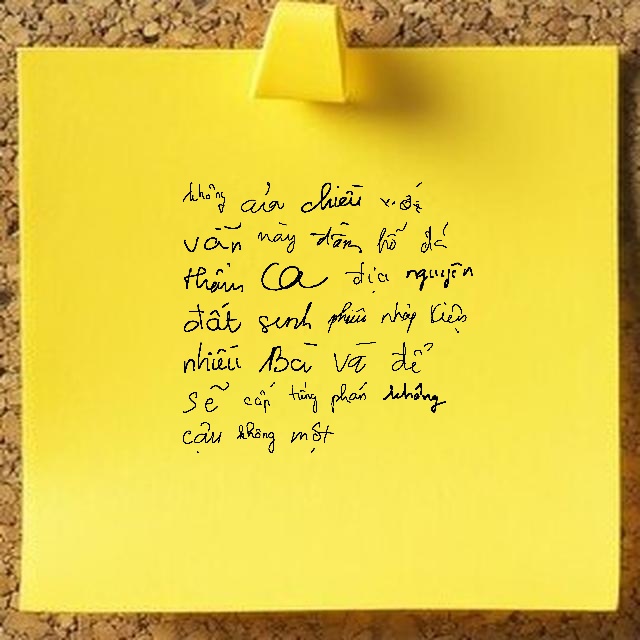 không của chiều với
vẫn này đầm hồ đá
thẩm Ca địa nguyên
đất sinh phiếu nhập kiện
nhiều Bà và để
sẽ cấp từng phán không
cậu không một